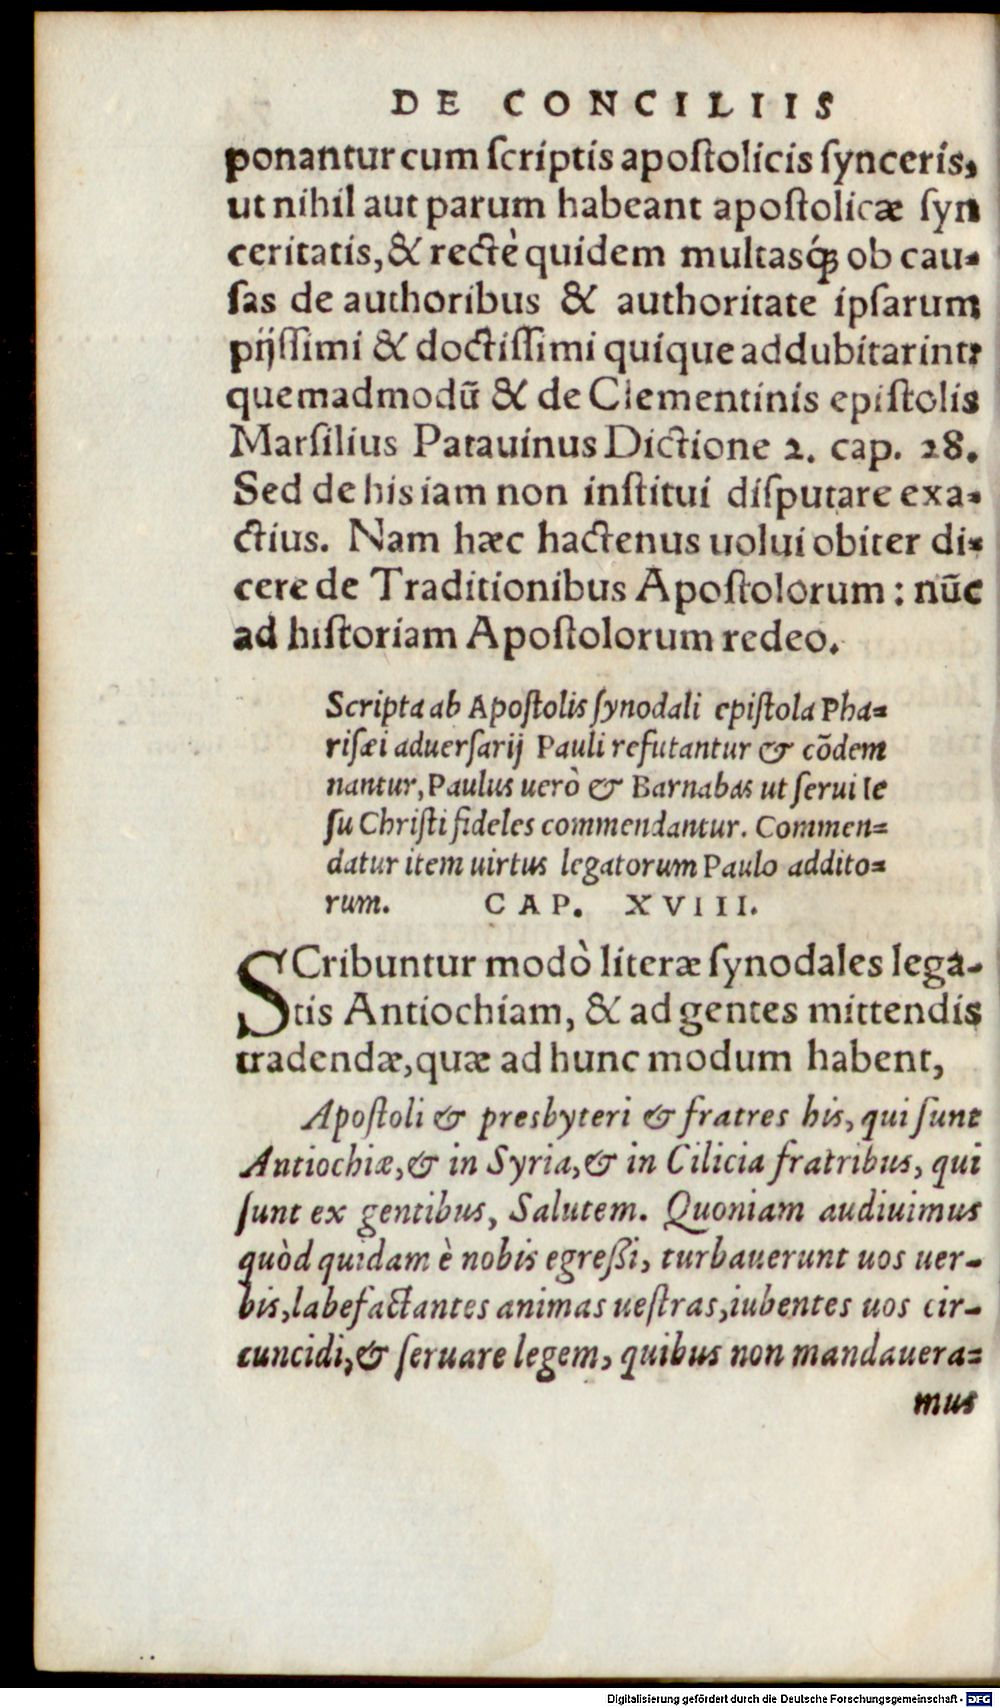 DE CONCILIIS
ponantur cum ſcriptis apoſtolicis ſynceris,
ut nihil aut parum habeant apoſtolicæ ſyn
ceritatis, & rectè quidem multasq́ꝫ ob cau-
ſas de authoribus & authoritate ipſarum
pijſſimi & doctiſſimi quique addubitarint:
quemadmodũ & de Clementinis epiſtolis
Marſilius Patauinus Dictione 2. cap. 28.
Sed de his iam non inſtitui diſputare exa-
ctius. Nam hæc hactenus uolui obiter di-
cere de Traditionibus Apoſtolorum: nũc
ad hiſtoriam Apoſtolorum redeo.
Scripta ab Apoſtolis ſynodali epiſtola Pha-
riſæi aduerſarij Pauli refutantur & cõdem
nantur, Paulus uerò & Barnabas ut ſerui Ie
ſu Chriſti fideles commendantur. Commen-
datur item uirtus legatorum Paulo addito-
rum. CAP. XVIII.
SCribuntur modò literæ ſynodales lega-
tis Antiochiam, & ad gentes mittendis
tradendæ, quæ ad hunc modum habent,
Apoſtoli & presbyteri & fratres his, qui ſunt
Antiochiæ, & in Syria, & in Cilicia fratribus, qui
ſunt ex gentibus, Salutem. Quoniam audiuimus
quòd quidam è nobis egreßi, turbauerunt uos uer-
bis, labefactantes animas ueſtras, iubentes uos cir-
cuncidi, & ſeruare legem, quibus non mandauera-
mus
Digitalisierung gefördert durch die Deutsche Forschungsgemeinschaft - DFG